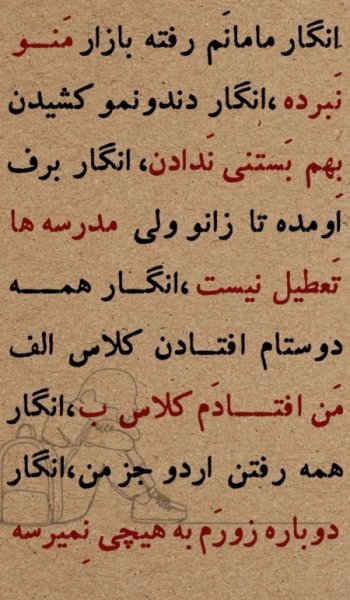 انگار مامانَم رفته بازار مَنـــو
نَبرده ،انگار دندونمو کشیدن
بِهم بَستنی نَدادن، انگار برف
اَومده تا زانو ولی مدرسه ها
تَعطیل نیست ،انگـــار همـــه
دوستام افتـــادن کلاس الف
مَن افتـــادَم کلاس ب،انگار
همه رفتن اردو جز من،انگار
دوباره زورَم به هیچی نِمیرسه